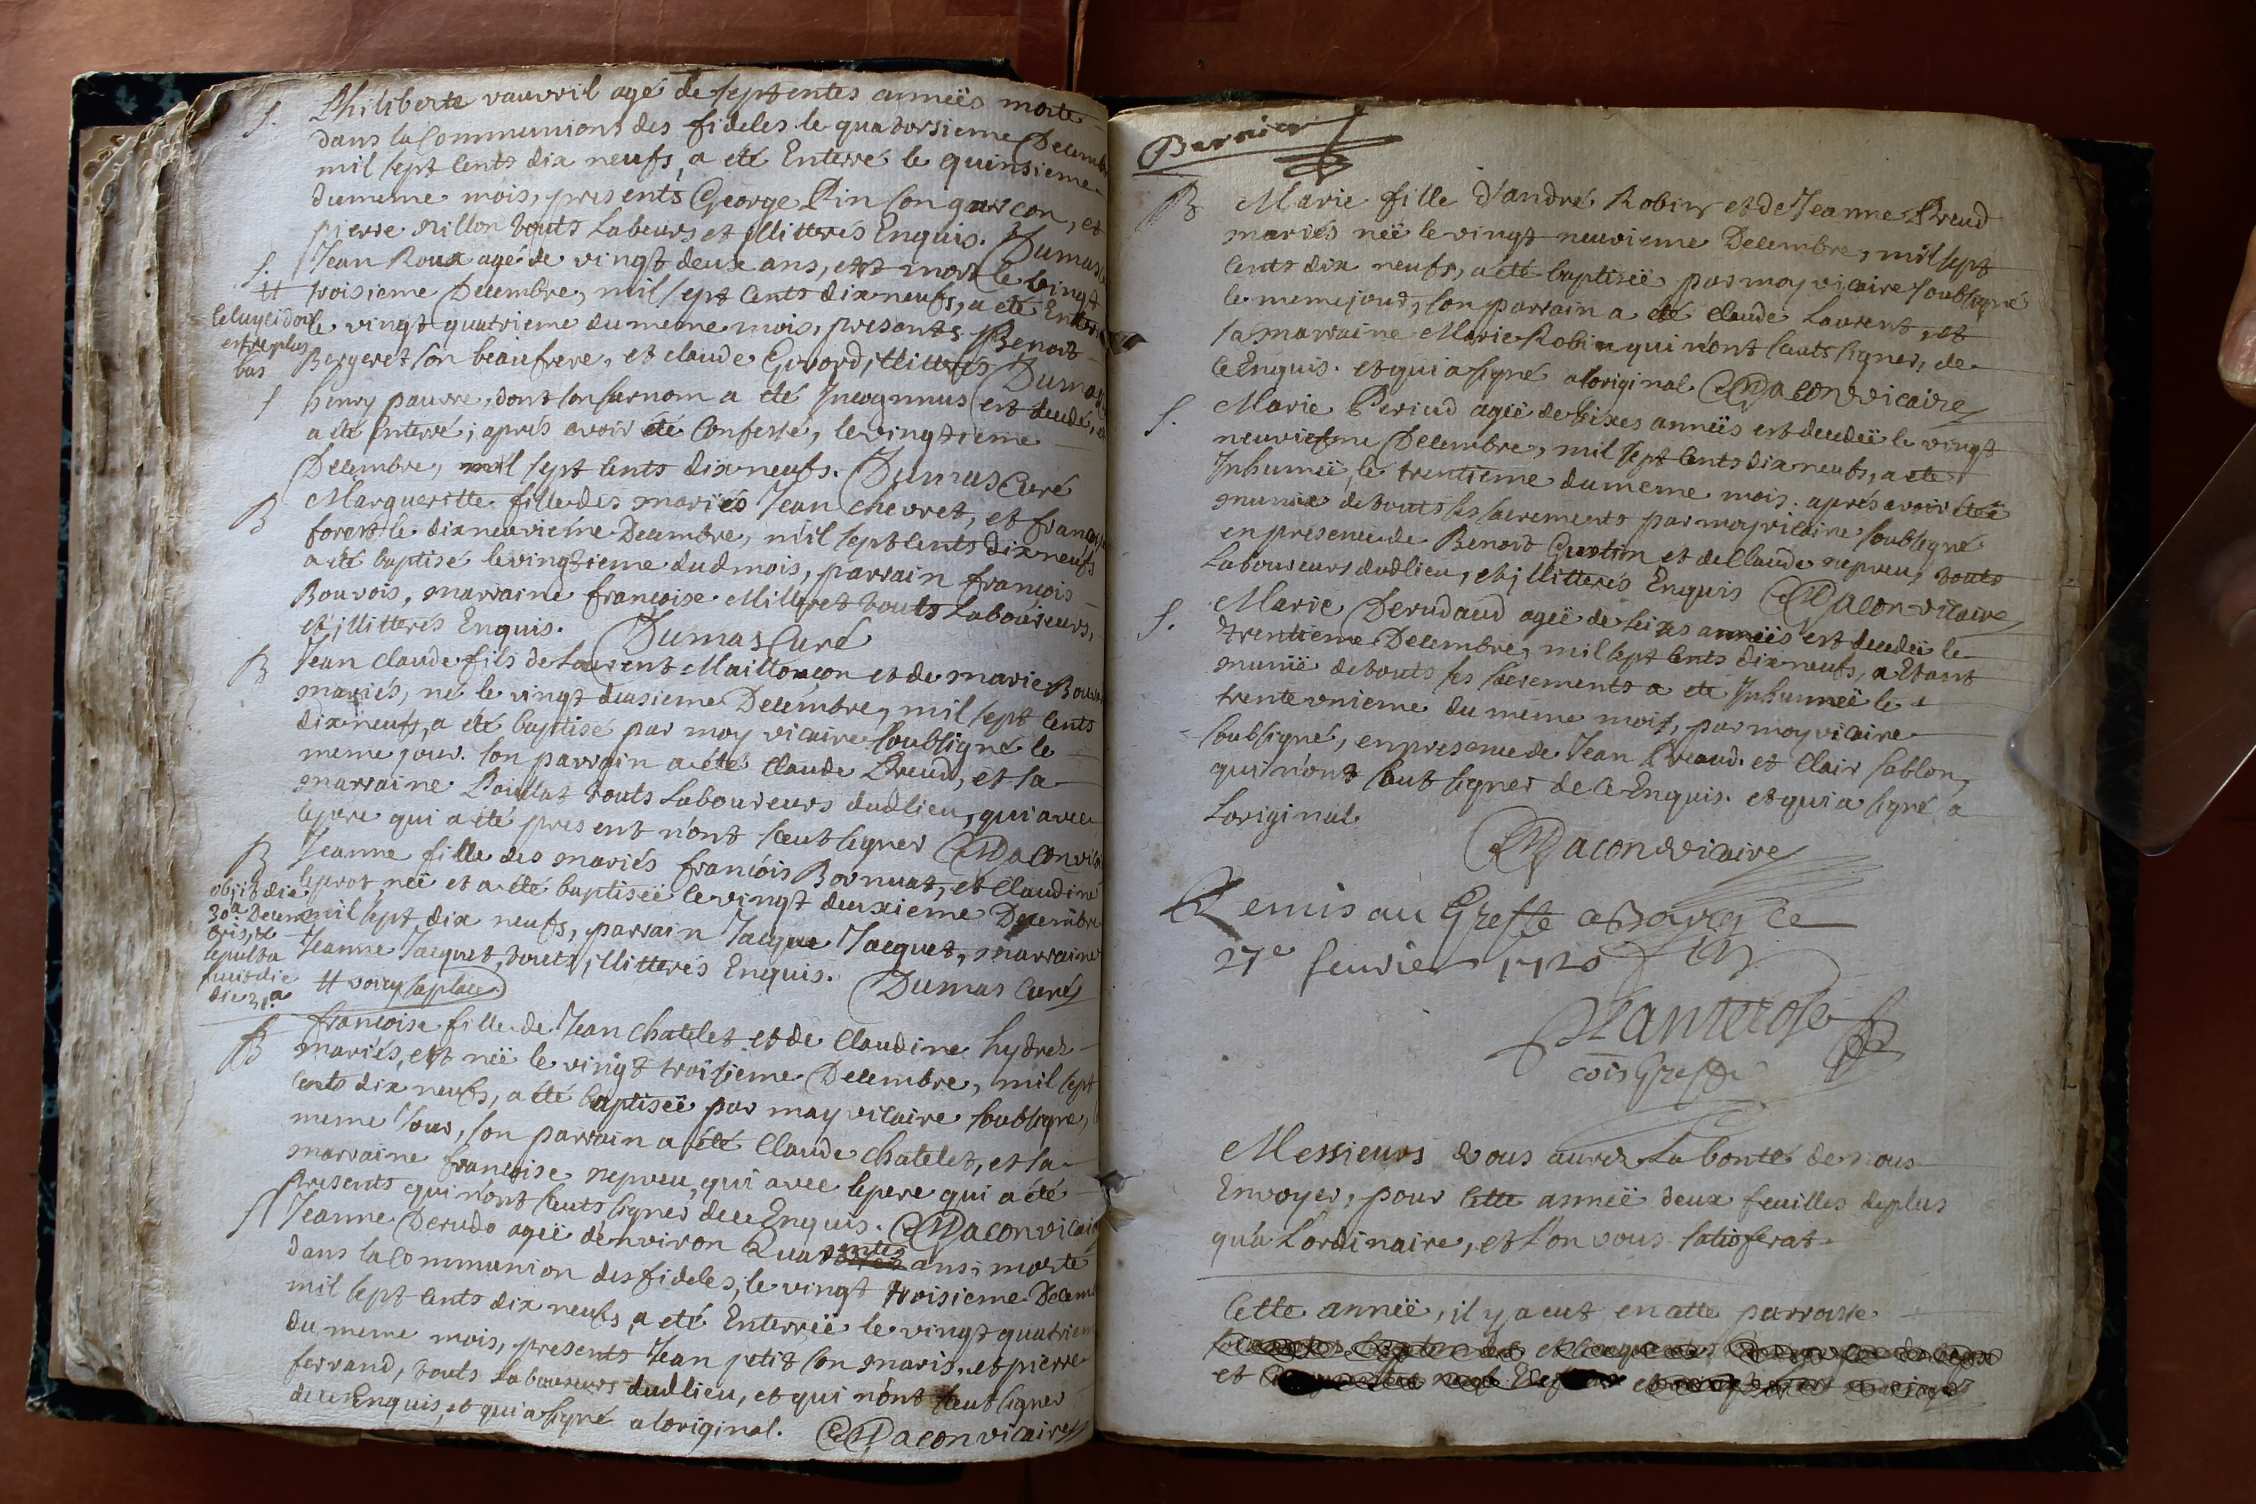 S. Philiberte vauvril agé de septentes anneës morte
dans la Communions des fideles le quatorsieme Decemb
mil sept Cents dix neufs, a eté Enterré le quinsieme
du meme mois, presents George Pin son garcon, et
pierre nillon touts Labeurs et illitterés Enquis. Dumas
S. Jean Roux agé de vingt deux ans, est mort le vingt
tt troisieme Decembre, mil sept Cents dix neufs, a eté Enter
le vingt quatrieme du meme mois, presents Benoit
Celuyci doit
estre plus
bas
Bergeret son beaufrere, et claude Girord, illitterés Dumas
S henry pauvre, dont son surnom a eté Incognnus est decedé, et
a eté Enterré, aprés avoir eté Confessé, le vingtieme
Decembre, mil sept Cents dix neufs. Dumas Curé
B Margueritte fille des mariés Jean Chevret, et francoise
forest le dixneuvieme Decembre, mil sept Cents dix neufs
a eté baptisé le vingtieme dud mois, parrain francois
Bouvois, marraine francoise Milleret touts Laboureurs,
et illitterés Enquis. Dumas Curé
B Jean Claude fils de Laurent Maillonçon et de marie
mariés, né le vingt deusieme Decembre, mil sept Cents
dix neufs, a eté baptisé par moy vicaire soubsigné le
meme jour. son parrain a eté Claude Preud, et sa
marraine Paulat touts Laboureurs dudlieu, qui avec
lepere qui a été present n'ont sceut signer Macon vic
B Jeanne fille des mariés francois Bornuat, et Claudine
leprot, neë et a eté baptiseë le vingt deuxieme Decembre
mil sept dix neufs, parrain Jacque Jacquet, marraine
Jeanne Jacquet, touts illitterés Enquis. Dumas Curé
obiit die
30a Decem
bris, &
sepulta
fuit die
die 31a
tt voicy saplace
B francoise fille de Jean Chatelet et de Claudine hydrez
mariés, est neë le vingt troisieme Decembre, mil sept
cents dix neufs, a eté baptiseë par moy vicaire soubsigné,
meme Jour, son parrain a été Claude Chatelet, et sa
marraine francoise nepveu, qui avec lepere qui a été
presents qui n'ont sceuts signer de ce Enquis. Macon vicaire
S Jeanne Derudo ageë d'environ Quarentes ans, morte
dans la Communion des fideles, le vingt troisieme Decem
mil sept Cents dix neufs, a eté Enterreë le vingt quatriem
du meme mois, presents Jean petit son maris, et pierre
ferrand, touts Laboureurs dudlieu, et qui n'ont sceut signer
de ce Enquis, et qui a signé a loriginal. Macon vicaire
Bernier
B Marie fille d'andré Robin et de Jeanne Preud
mariés neë le vingt neuvieme Decembre, mil sept
Cents dix neufs, a eté baptiseë par moy vicaire soubsigné
le meme jour, son parrain a eté claude Laurent, et
sa marraine Marie Robin qui n'ont sceuts signer, de
ce Enquis. et qui a signé a loriginal Macon vicaire
S. Marie Periud ageë de seixes anneës est decedeë le vingt
neuvieme Decembre, mil sept Cents dix neufs, a ete
Inhumeë le trentieme du meme mois. aprés avoir eteë
munie de touts ses sacrements par moy vicaire soubsigné
en presence de Benoit Guettin et de Claude nepveu, touts
Laboureurs dudlieu, et illitterés Enquis Macon vicaire
S. Marie Derudaud ageë de seixes anneës est decedeë le
trentieme Decembre, mil sept Cents dix neufs, a Etant
munië de touts ses sacrements a eté Inhumeë le
trente unieme du meme mois, par moy vicaire
soubsigné, en presence de Jean Preaud. et Clair sablon,
qui n'ont sceut signer de ce Enquis. et qui a signé a
Loriginal
Macon vicaire
Remis au Greffe ce
27e feuvrier 1720
cõis Greffe
Messieurs vous aurez La bonté de nous
Envoyer, pour Cette anneë deux feuilles deplus
qu'a Lordinaire, et l'on vous satisferat.
Cette anneë, il y a eut en cette parroisse
et